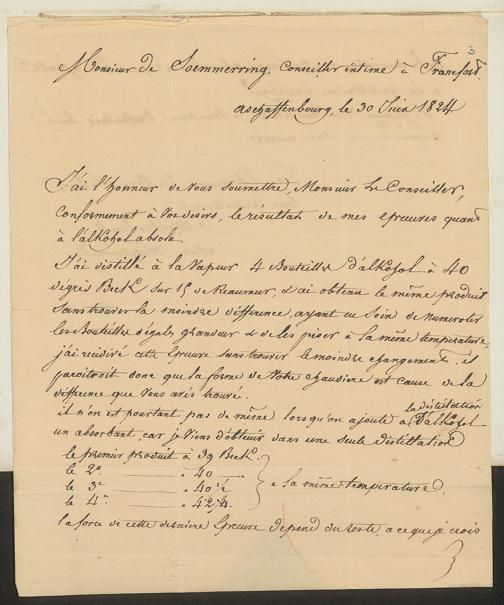 3
Monsieur de Soemmerring, Conseiller intime à Francfort.
aschaffenbourg, le 30 Juin 1824
J'ai l'honneur de vous soumettre, Monsieur Le Conseiller,
Conformement à Vos desirs, le résultat de mes épreuves quant
à l'alkohol absolu.
J'ai distillé à la Vapeur 4 Bouteilles d'alkohol à 40
degrés Beck sur 15 de Reaumur, & ai obtenu le même produit
sans trouver la moindre différence, ayant eu soin de numeroter
les Bouteilles d'égale grandeur & de les peser à la même temperature,
j'ai recidivé cette épreuve sans trouver le moindre changement. il
paroitroit donc que la forme de Votre chaudiere est cause de la
différence que Vous avés trouvé.
il n'en est pourtant pas de même lorsqu'on ajoute à la distillation d'alkohol
un absorbant, car je viens d'obtenir dans une seule distillation
le premier produit à 39 Beck.
le 2e ——— " 40 ———
le 3e ——— " 40 ½
le 4e ——— " 42 ¼.
à la même temperature.
la force de cette derniere épreuve depend du reste, a ce que je crois